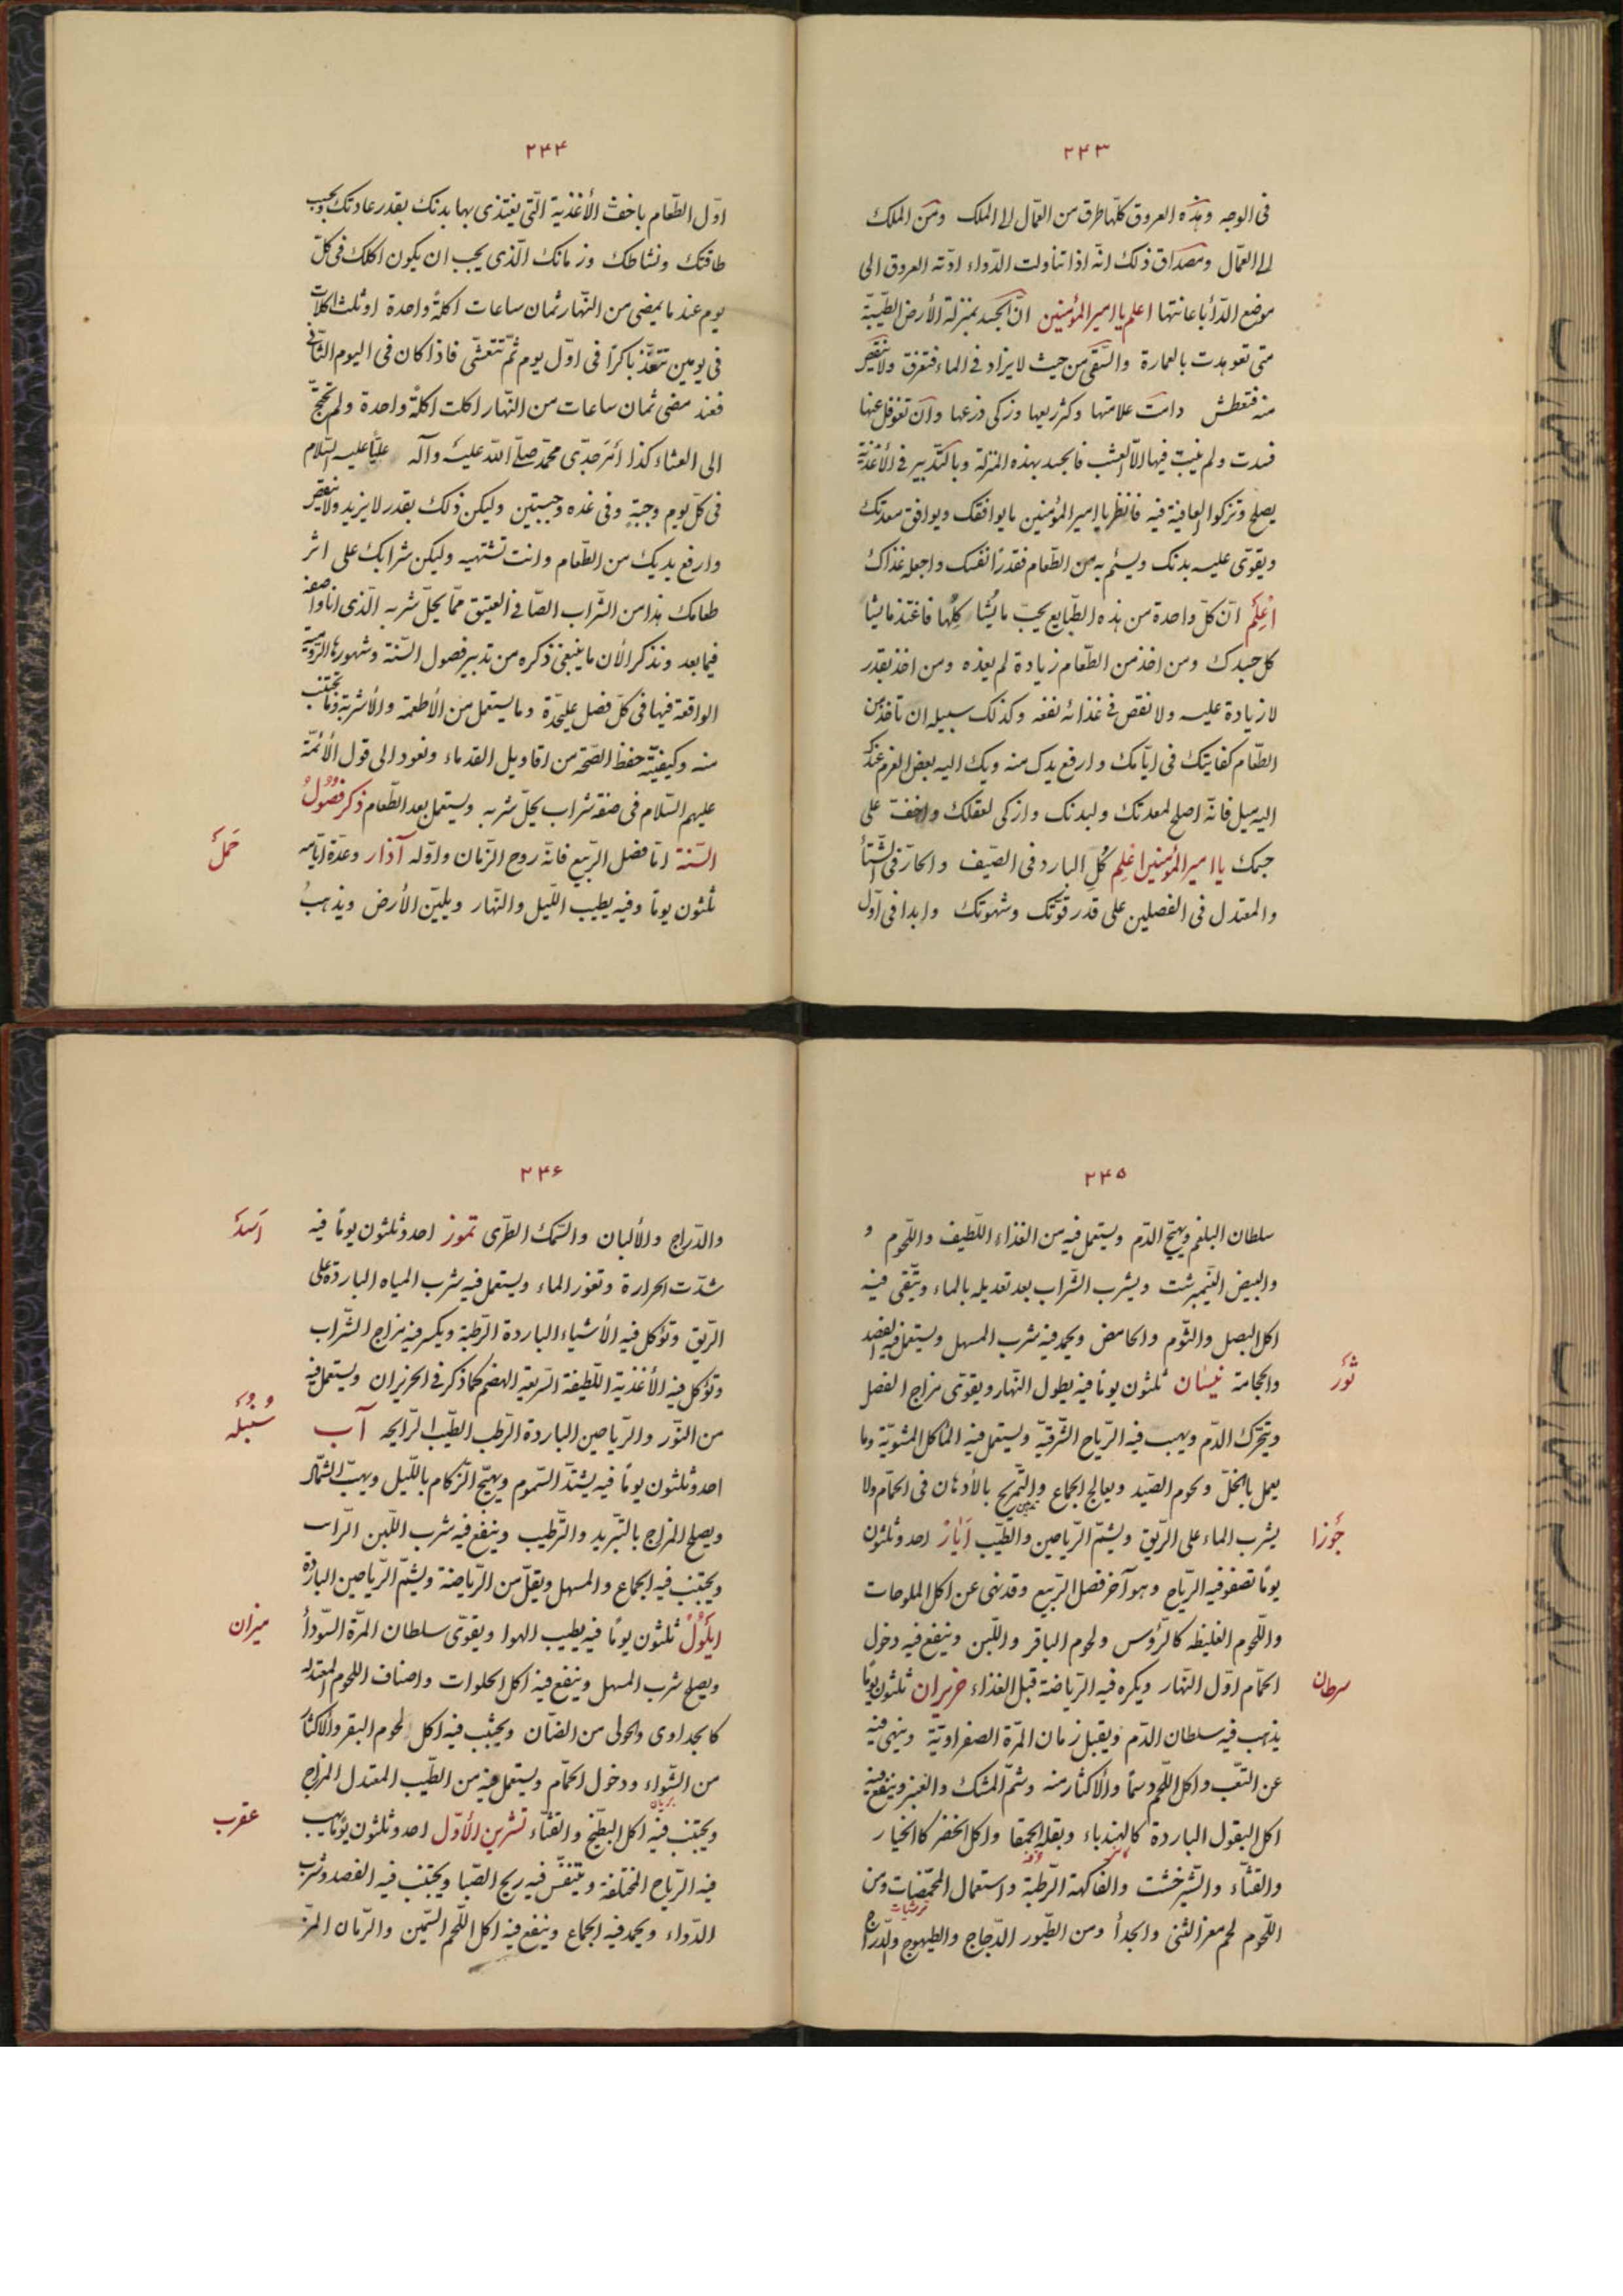 ۲۴۳
فی الوجه وهذه العروق کلّها طرق من العمّال الی الملک ومن الملک
الی العمّال ومصداق ذلک انّه اذا تناولت الدّواء ادّته العروق الی
موضع الدّأ باعانتها اعلم یا امیر المؤمنین انّ الجسد بمنزلة الأرض الطّیّبة
متی تعوهدت بالعمارة والسّقی من حیث لا یزاد فی الماء فتغرق ولا ینقص
منه فتعطش دامت علامتها وکثر ریعها وزکی زرعها وان تغوفل عنها
فسدت ولم ینبت فیها الّا العشب فالجسد بهذه المنزلة وبالتّدبیر فی الأغذیة
یصلح وتزکوا العافیة فیه فانظر یا امیر المؤمنین ما یوافقک ویوافق معدتک
ویقوّی علیه بدنک ویستمرء من الطّعام فقدّر لنفسک واجعله غذاک
اعلم انّ کلّ واحدة من هذه الطّبایع یحبّ ما یشا کلها فاغتذ ما یشا
کل جسدک ومن اخذ من الطّعام زیادة لم یغذه ومن اخذ بقدر
لا زیادة علیه ولا نقص فی غذائه نفعه وکذلک سبیله ان تأخذ من
الطّعام کفایتک فی ایّامک وارفع یدک منه وبک الیه بعض القرم عندک
الیه میل فانّه اصلح لمعدتک ولبدنک وازکی لعقلک واخفّ علی
جسمک یا امیر المؤمنین اعلم کُلِ البارد فی الصّیف والحارّ فی الشّتأ
والمعتدل فی الفصلین علی قدر قوّتک وشهوتک وابدا فی اوّل
۲۴۴
اوّل الطّعام باخفّ الأغذیة الّتی یغتذی بها بدنک بقدر عادتک وبحسب
طاقتک ونشاطک وزمانک الّذی یجب ان یکون اکلک فی کلّ
یوم عند ما یمضی من النّهار ثمان ساعات اکلة واحدة او ثلث اکلات
فی یومین تتغذّ باکرًا فی اوّل یوم ثمّ تتعشّی فاذا کان فی الیوم الثّانی
فعند مضی ثمان ساعات من النّهار اکلت اکلة واحدة ولم تحتج
الی العشاء کذا امر جدّی محمّد صلّی اللّه علیه وآله علیًّا علیه السّلام
فی کلّ یوم وجبة وفی غده وجبتین ولیکن ذلک بقدر لا یزید ولا ینقص
وارفع یدیک من الطّعام وانت تشتهیه ولیکن شرابک علی اثر
طعامک هذا من الشّراب الصّافی العتیق ممّا یحلّ شربه الّذی انا واصفه
فیما بعد ونذکر الأن ما ینبغی ذکره من تدبیر فصول السّنة وشهورها الرّومیة
الواقعة فیها فی کلّ فصل علیحدة وما یستعمل من الأطعمة والأشربة وما تجتنب
منه وکیفیّة حفظ الصّحّة من اقاویل القدماء ونعود الی قول الأئمّة
علیهم السّلام فی صفة شراب یحلّ شربه ویستعمل بعد الطّعام ذکر فصول
السّنة امّا فصل الرّبیع فانّه روح الزّمان واوّله آذار وعدّة ایّامه
حَمَل
ثلثون یومًا وفیه یطیب اللّیل والنّهار ویلیّن الأرض ویذهب
۲۴۵
سلطان البلغم ویهیّج الدّم ویستعمل فیه من الغذاء اللّطیف واللّحوم و
والبیض النّیمبرشت ویشرب الشّراب بعد تعدیله بالماء ویتّقی فیه
اکل البصل والثّوم والحامض ویحمد فیه شرب المسهل ویستعمل فیه الفصد
والحجامة نیسان ثلثون یومًا فیه یطول النّهار ویقوّی مزاج الفصل
ثور
ویتحرّک الدّم ویهب فیه الرّیاح الشّرقیّة ویستعمل فیه المٔاکل المشویّة وما
یعمل بالخلّ ولحوم الصّید ویعالج الجماع والتّمریخ بالأدهان فی الحمّام ولا
یشرب الماء علی الرّیق ویشمّ الرّیاحین والطّیب ایّار احد وثلثون
جوزا
یومًا تصفو فیه الرّیاح وهو آخر فصل الرّبیع وقد نهی عن اکل الملوحات
واللّحوم الغلیظه کالرّؤس ولحوم الباقر واللّبن وینفع فیه دخول
الحمّام اوّل النّهار ویکره فیه الرّیاضة قبل الغذاء حزیران ثلثون یومًا
سرطان
یذهب فیه سلطان الدّم ویقبل زمان المرّة الصفراویّة وینهی فیه
عن التعّب واکل اللّحم دسمًا والأکثار منه وشمّ المشک والعنبر وینفع فیه
اکل البقول الباردة کالهندباء وبقلة الحمقا واکل الخضر کالخیار
والقثّاء والشّیرخشت والفاکهة الرّطبة واستعمال المحمّضات ومن
ترشیات
اللّحوم لحم معز الثنی والجدأ ومن الطّیور الدّجاج والطیهوج والدّراج
۲۴۶
والدّراج والألبان والسّمک الطّری تموز احد وثلثون یومًا فیه
اسد
شدّت الحرارة وتغور الماء ویستعمل فیه شرب المیاه الباردة علی
الرّیق وتؤکل فیه الأشیاء الباردة الرّطبة ویکسر فیه مزاج الشّراب
وتؤکل فیه الأغذیة اللّطیفة السّریعة الهضم کما ذکر فی الحزیران ویستعمل فیه
من النّور والرّیاحین الباردة الرّطب الطّیّب الرّایحه آب
سنبله
احد وثلثون یومًا فیه یشتدّ السّموم ویهیّج الزّکام باللّیل ویهبّ الشّمال
ویصلح المزاج بالتّبرید والتّرطیب وینفع فیه شرب اللّبن الرّائب
ویجتنب فیه الجماع والمسهل ویقلّ من الرّیاضة ویشمّ الرّیاحین الباردة
ایلول ثلثون یومًا فیه یطیب الهوا ویقوّی سلطان المرّة السّودأ
میزان
ویصلح شرب المسهل وینفع فیه اکل الحلوات واصناف اللحوم المعتدله
کالجداوی والحولی من الضّان ویجتنب فیه اکل لحوم البقر والأکثار
من الشّواء ودخول الحمّام ویستعمل فیه من الطّیب المعتدل المزاج
بریان
ویجتنب فیه اکل البطّیخ والقثّاء تشرین الأوّل احد وثلثون یومًا یهب
عقرب
فیه الرّیاح المختلفة ویتنفّس فیه ریح الصّبا ویجتنب فیه الفصد وشرب
الدّواء ویحمد فیه الجماع وینفع فیه اکل اللّحم السّمین والرّمان المزّ